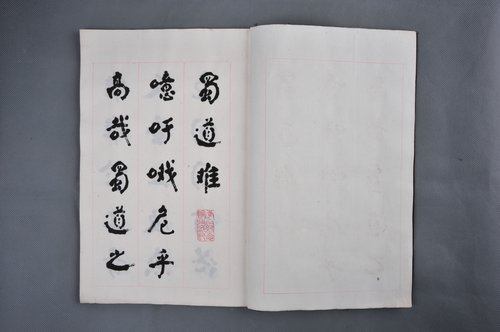 蜀道难
噫吁哦危乎
高哉蜀道之